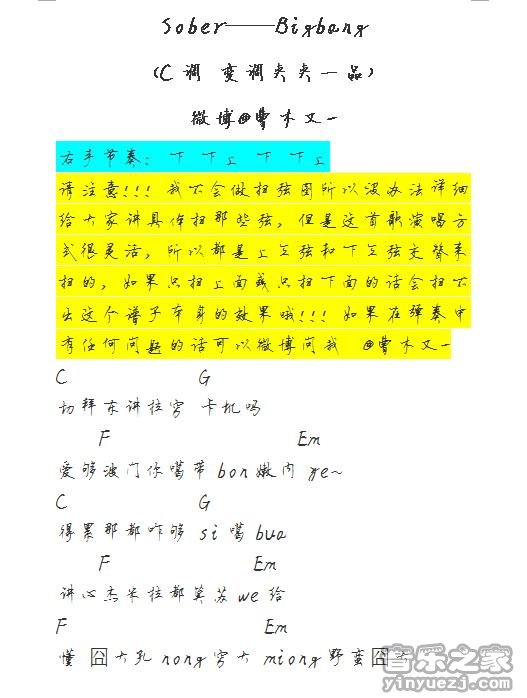 Sober——Bigbang
(C 调 变调夹夹一品)
微博@曹木又一
右手节奏: 下 下上 下 下上
请注意!!! 我不会做扫弦图所以没办法详细
给大家讲具体扫那些弦, 但是这首歌演唱方
式很灵活, 所以都是上三弦和下三弦交替来
扫的, 如果只扫上面或只扫下面的话会扫不
出这个谱子本身的效果哦!!! 如果在弹奏中
有任何问题的话可以微博问我 @曹木又一
C G
切拜东讲拉穷 卡机吗
F Em
爱够波门你噶带 bon 嫩内 ye~
C G
得累那都咋够 si 噶 bua
F Em
讲心杰米拉都莫苏 we 给
F Em
懂 囧大乳 nong 穷大 miong 野蛮囧大
音乐之家
yinyuezj.com